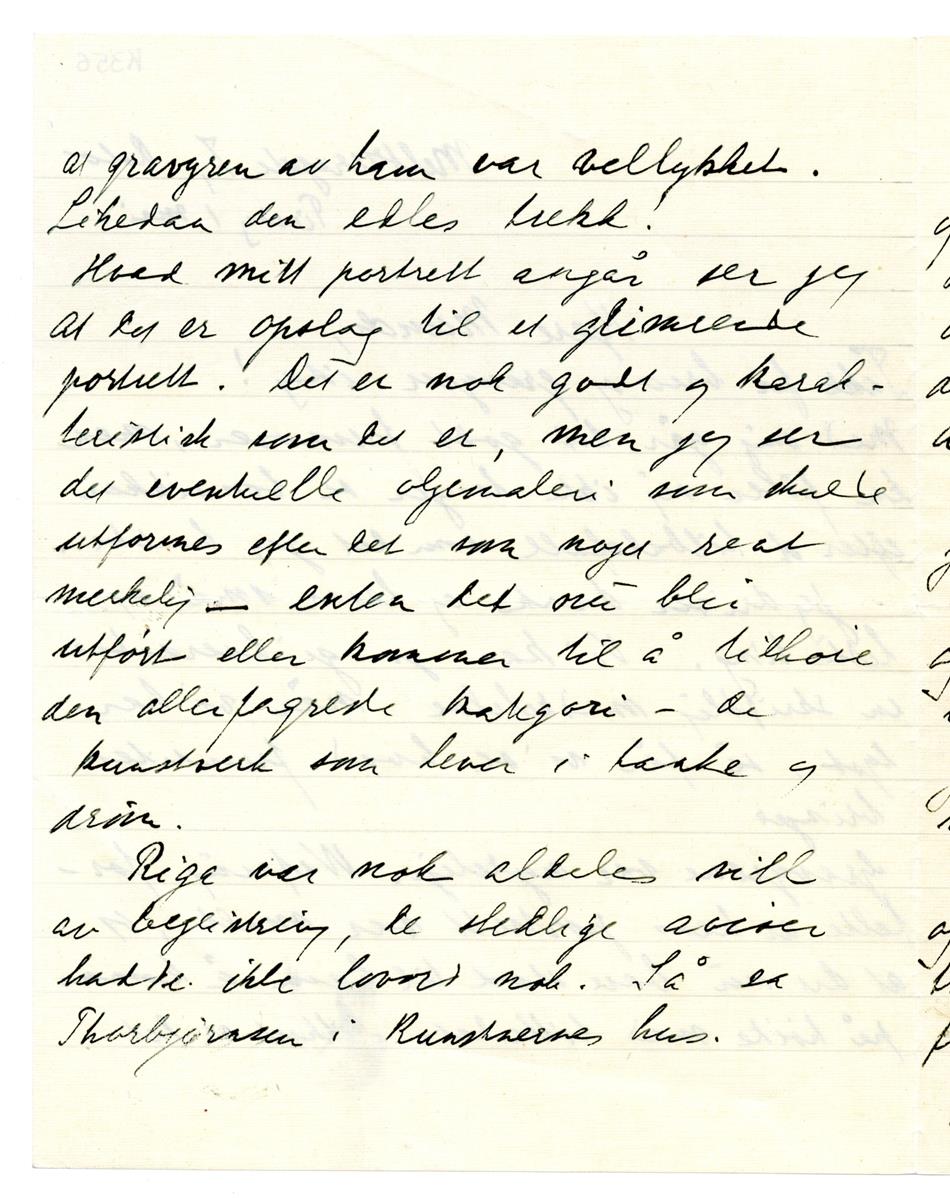 at gravyren av ham var vellykket.
Likedan den edles trekk!
Hvad mitt portrett angår ser jeg
at det er opslag til et glimrende
portrett. Det er nok godt og karak-
teristisk som det er, men jeg ser
det eventuelle oljemaleri som skulde
utformes efter det som noget reat
merkelig – enten det nu blir
utført eller kommer til å tilhøre
den allerfagreste kategori – de
kunstverk som lever i tanke og
drøm.
Riga var nok aldeles vill
av begeistring, de stedlige aviser
hadde ikke lovord nok. Så sa
Thorbjørnsen i Kunstnernes hus.
K356